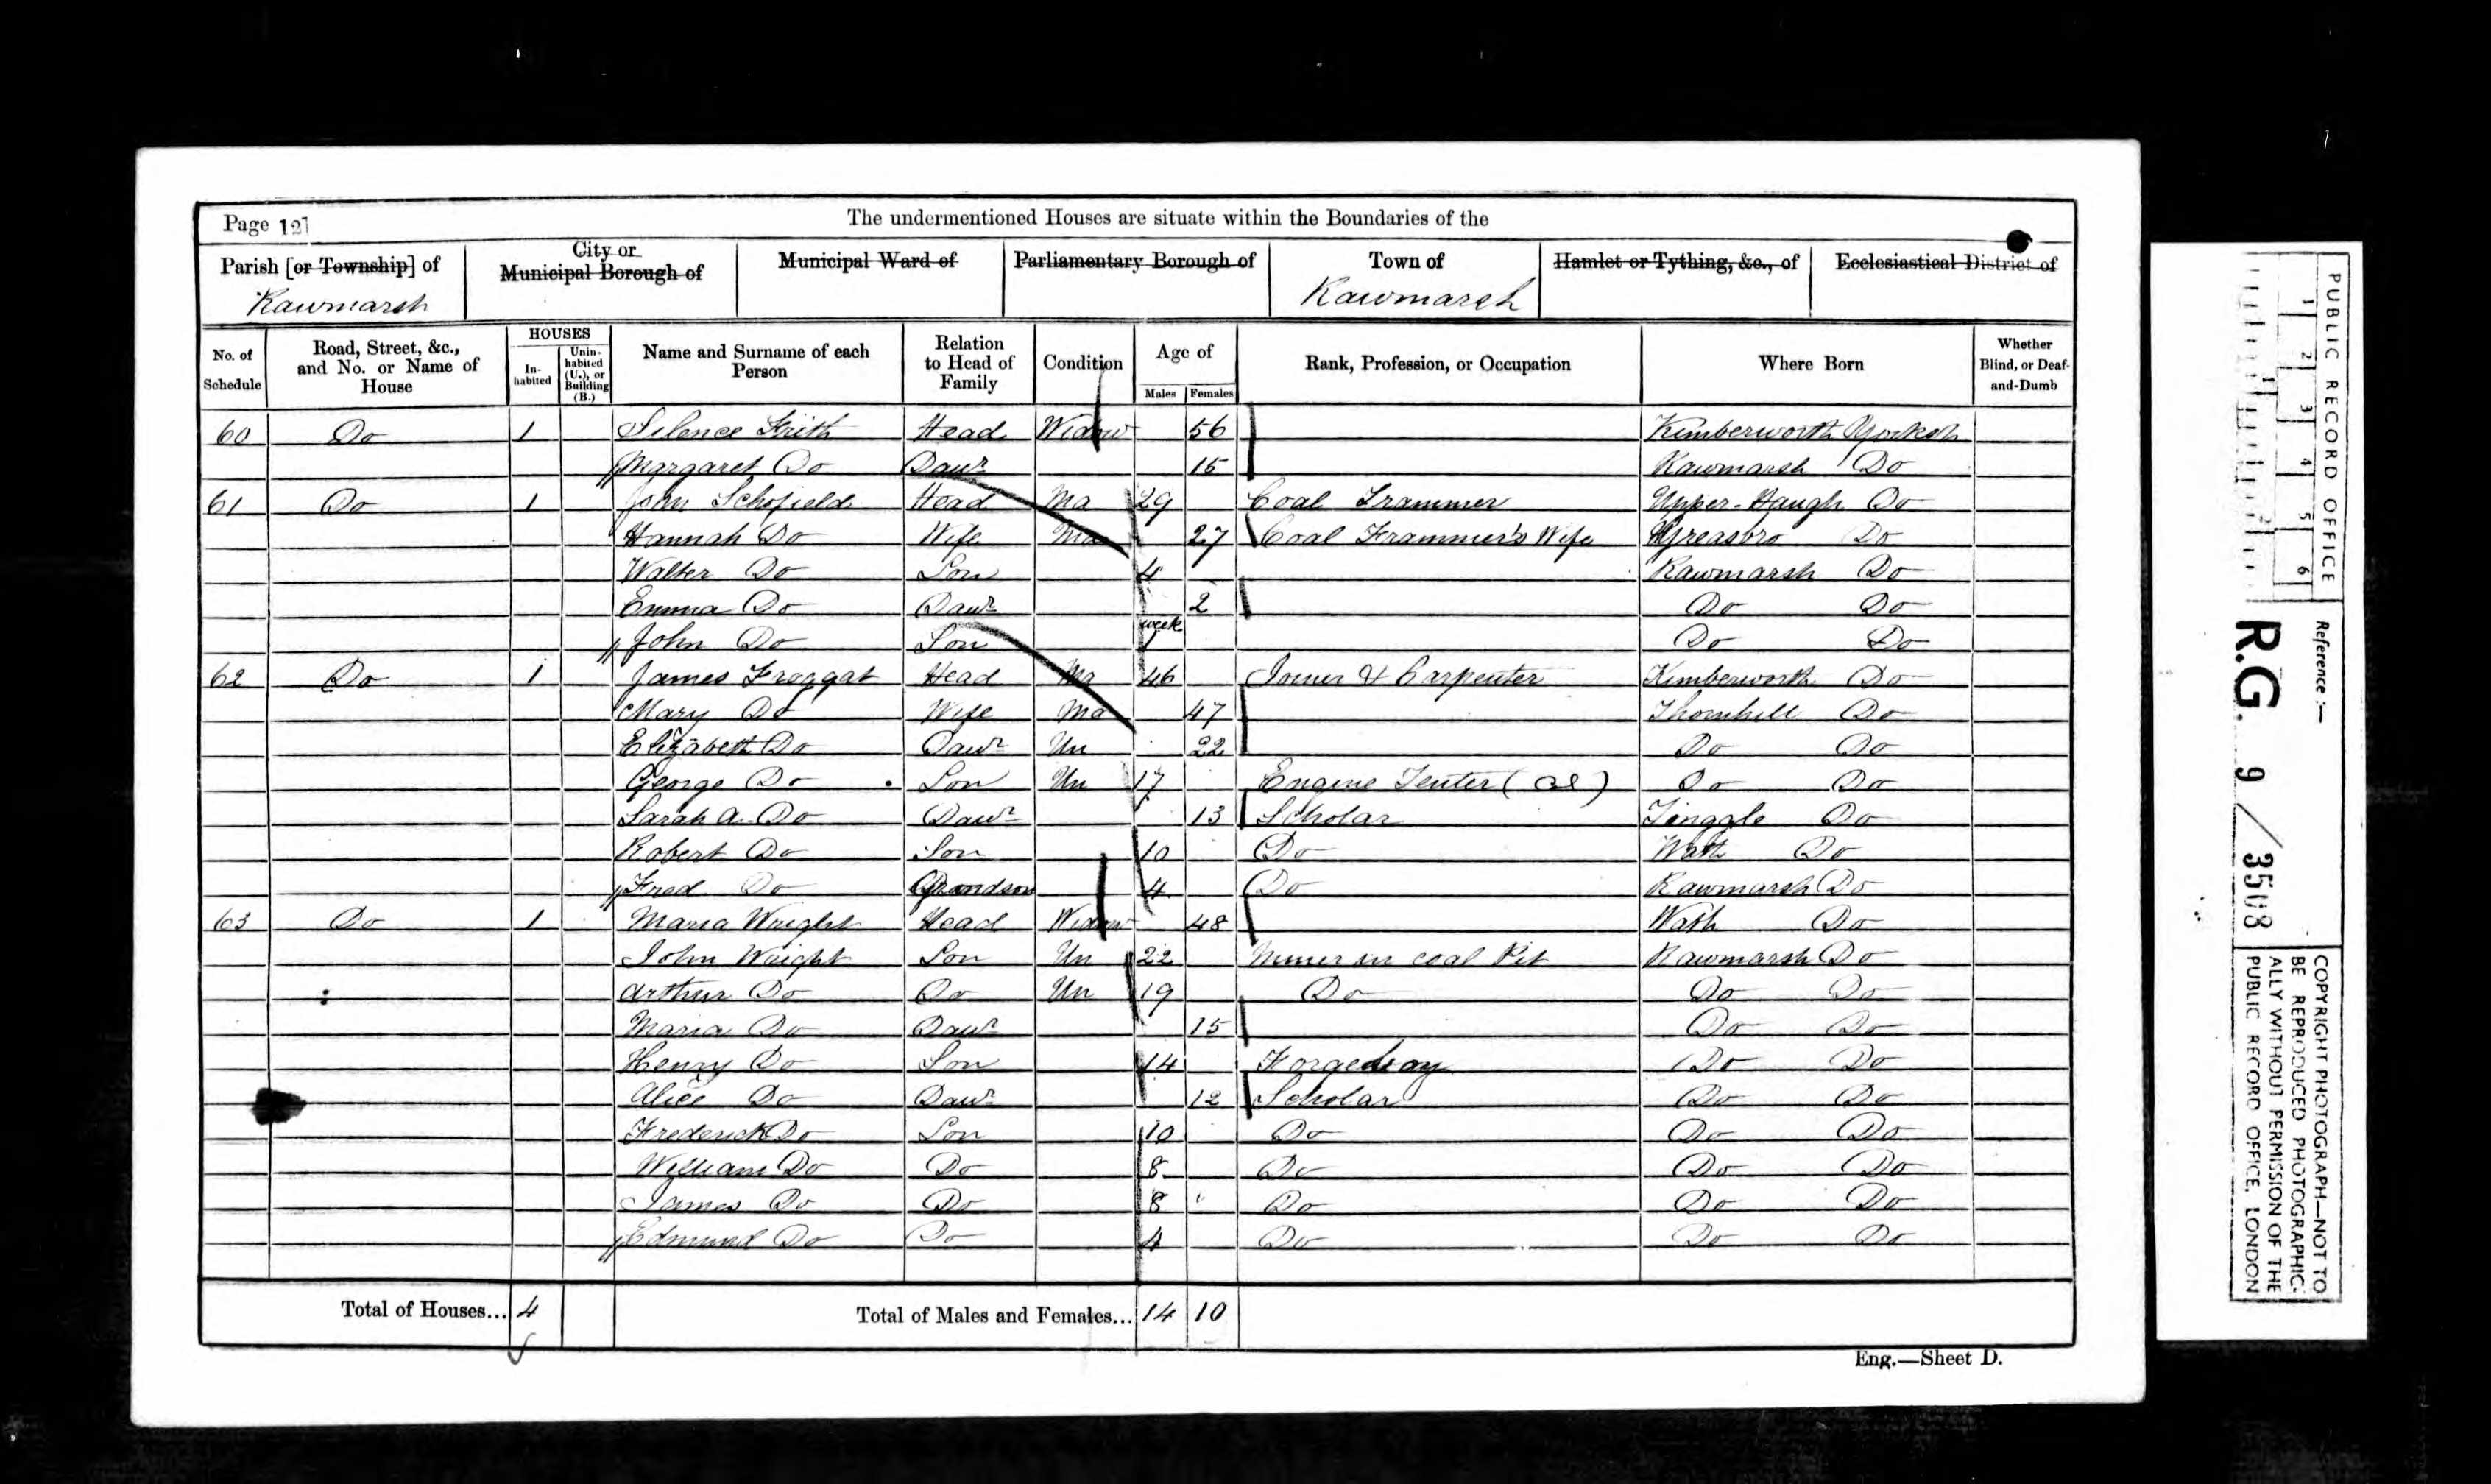 Page 121
The undermentioned Houses are situate within the Boundaries of the
Parish [or Township] of
Rawmarsh
City or
Municipal Borough of
Municipal Ward of
Parliamentary Borough of
Town of
Rawmarsh
Hamlet or Tything, &c., of
Ecclesiastical District of
No. of Schedule
Road, Street, &c., and No. or Name of House
HOUSES
In-habited
Unin-habited (U.), or Building (B.)
Name and Surname of each Person
Relation to Head of Family
Condition
Age of
Males
Females
Rank, Profession, or Occupation
Where Born
Whether Blind, or Deaf-and-Dumb
60 Do 1 Silence Frith Head Widow 56 Kimberworth Yorksh
Margaret Do Daur 15 Rawmarsh Do
61 Do 1 John Schofield Head Ma 29 Coal Trammer Upper-Haugh Do
Hannah Do Wife Ma 27 Coal Trammer's Wife Greasbro Do
Walter Do Son 4 Rawmarsh Do
Emma Do Daur 2 Do Do
John Do Son week 1 Do Do
62 Do 1 James Froggat Head Ma 46 Joiner & Carpenter Kimberworth Do
Mary Do Wife Ma 47 Thornhill Do
Elizabeth Do Daur Un 22 Do Do
George Do Son Un 17 Engine Tenter ( ) Do Do
Sarah A. Do Daur 13 Scholar Tinggle Do
Robert Do Son 10 Do Wath Do
Fred Do Grandson 4 Do Rawmarsh Do
63 Do 1 Maria Wright Head Widow 48 Wath Do
John Wright Son Un 22 Miner in coal Pit Rawmarsh Do
Arthur Do Do Un 19 Do Do Do
Maria Do Daur 15 Do Do
Henry Do Son 14 Forgeboy Do Do
Alice Do Daur 12 Scholar Do Do
Frederick Do Son 10 Do Do Do
William Do Do 8 Do Do Do
James Do Do 8 Do Do Do
Edmund Do Do 4 Do Do Do
Total of Houses... 4
Total of Males and Females... 14 10
Eng.—Sheet D.
PUBLIC RECORD OFFICE
1 2 3 4 5 6
1 2
Reference :—
R.G. 9 / 3508
COPYRIGHT PHOTOGRAPH—NOT TO
BE REPRODUCED PHOTOGRAPHIC-
ALLY WITHOUT PERMISSION OF THE
PUBLIC RECORD OFFICE. LONDON